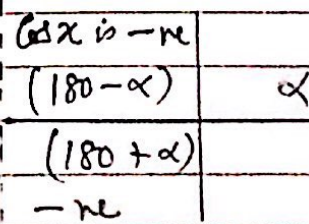 Cos x is -ve
(180 - α) α
(180 + α)
-ve